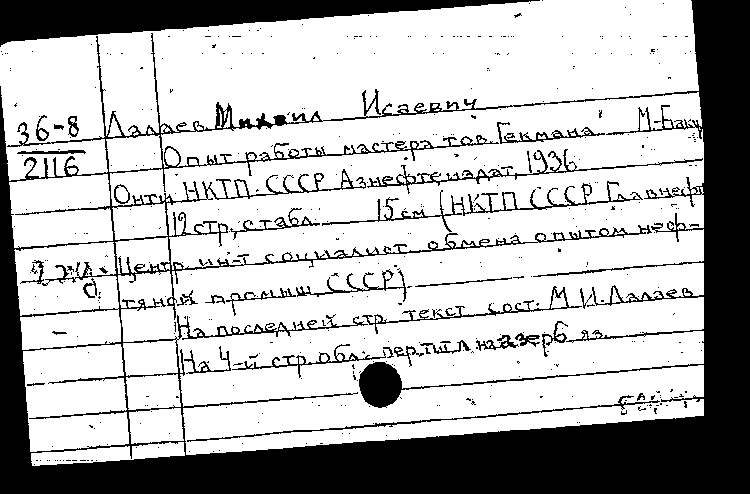 36-8
2116
Лалаев Михаил Исаевич
Опыт работы мастера тов. Гекмана М-Баку
Онти НКТП СССР Азнефтеиздат, 1936
12 стр, с табл. 15 см (НКТП СССР Главнефт
2 экз. Центр. ин-т социалист обмена опытом неф-
тяной промыш СССР)
На последней стр. текст сост. М.И.Лалаев
На 4-й стр. обл: пер. тит. л на азерб яз.